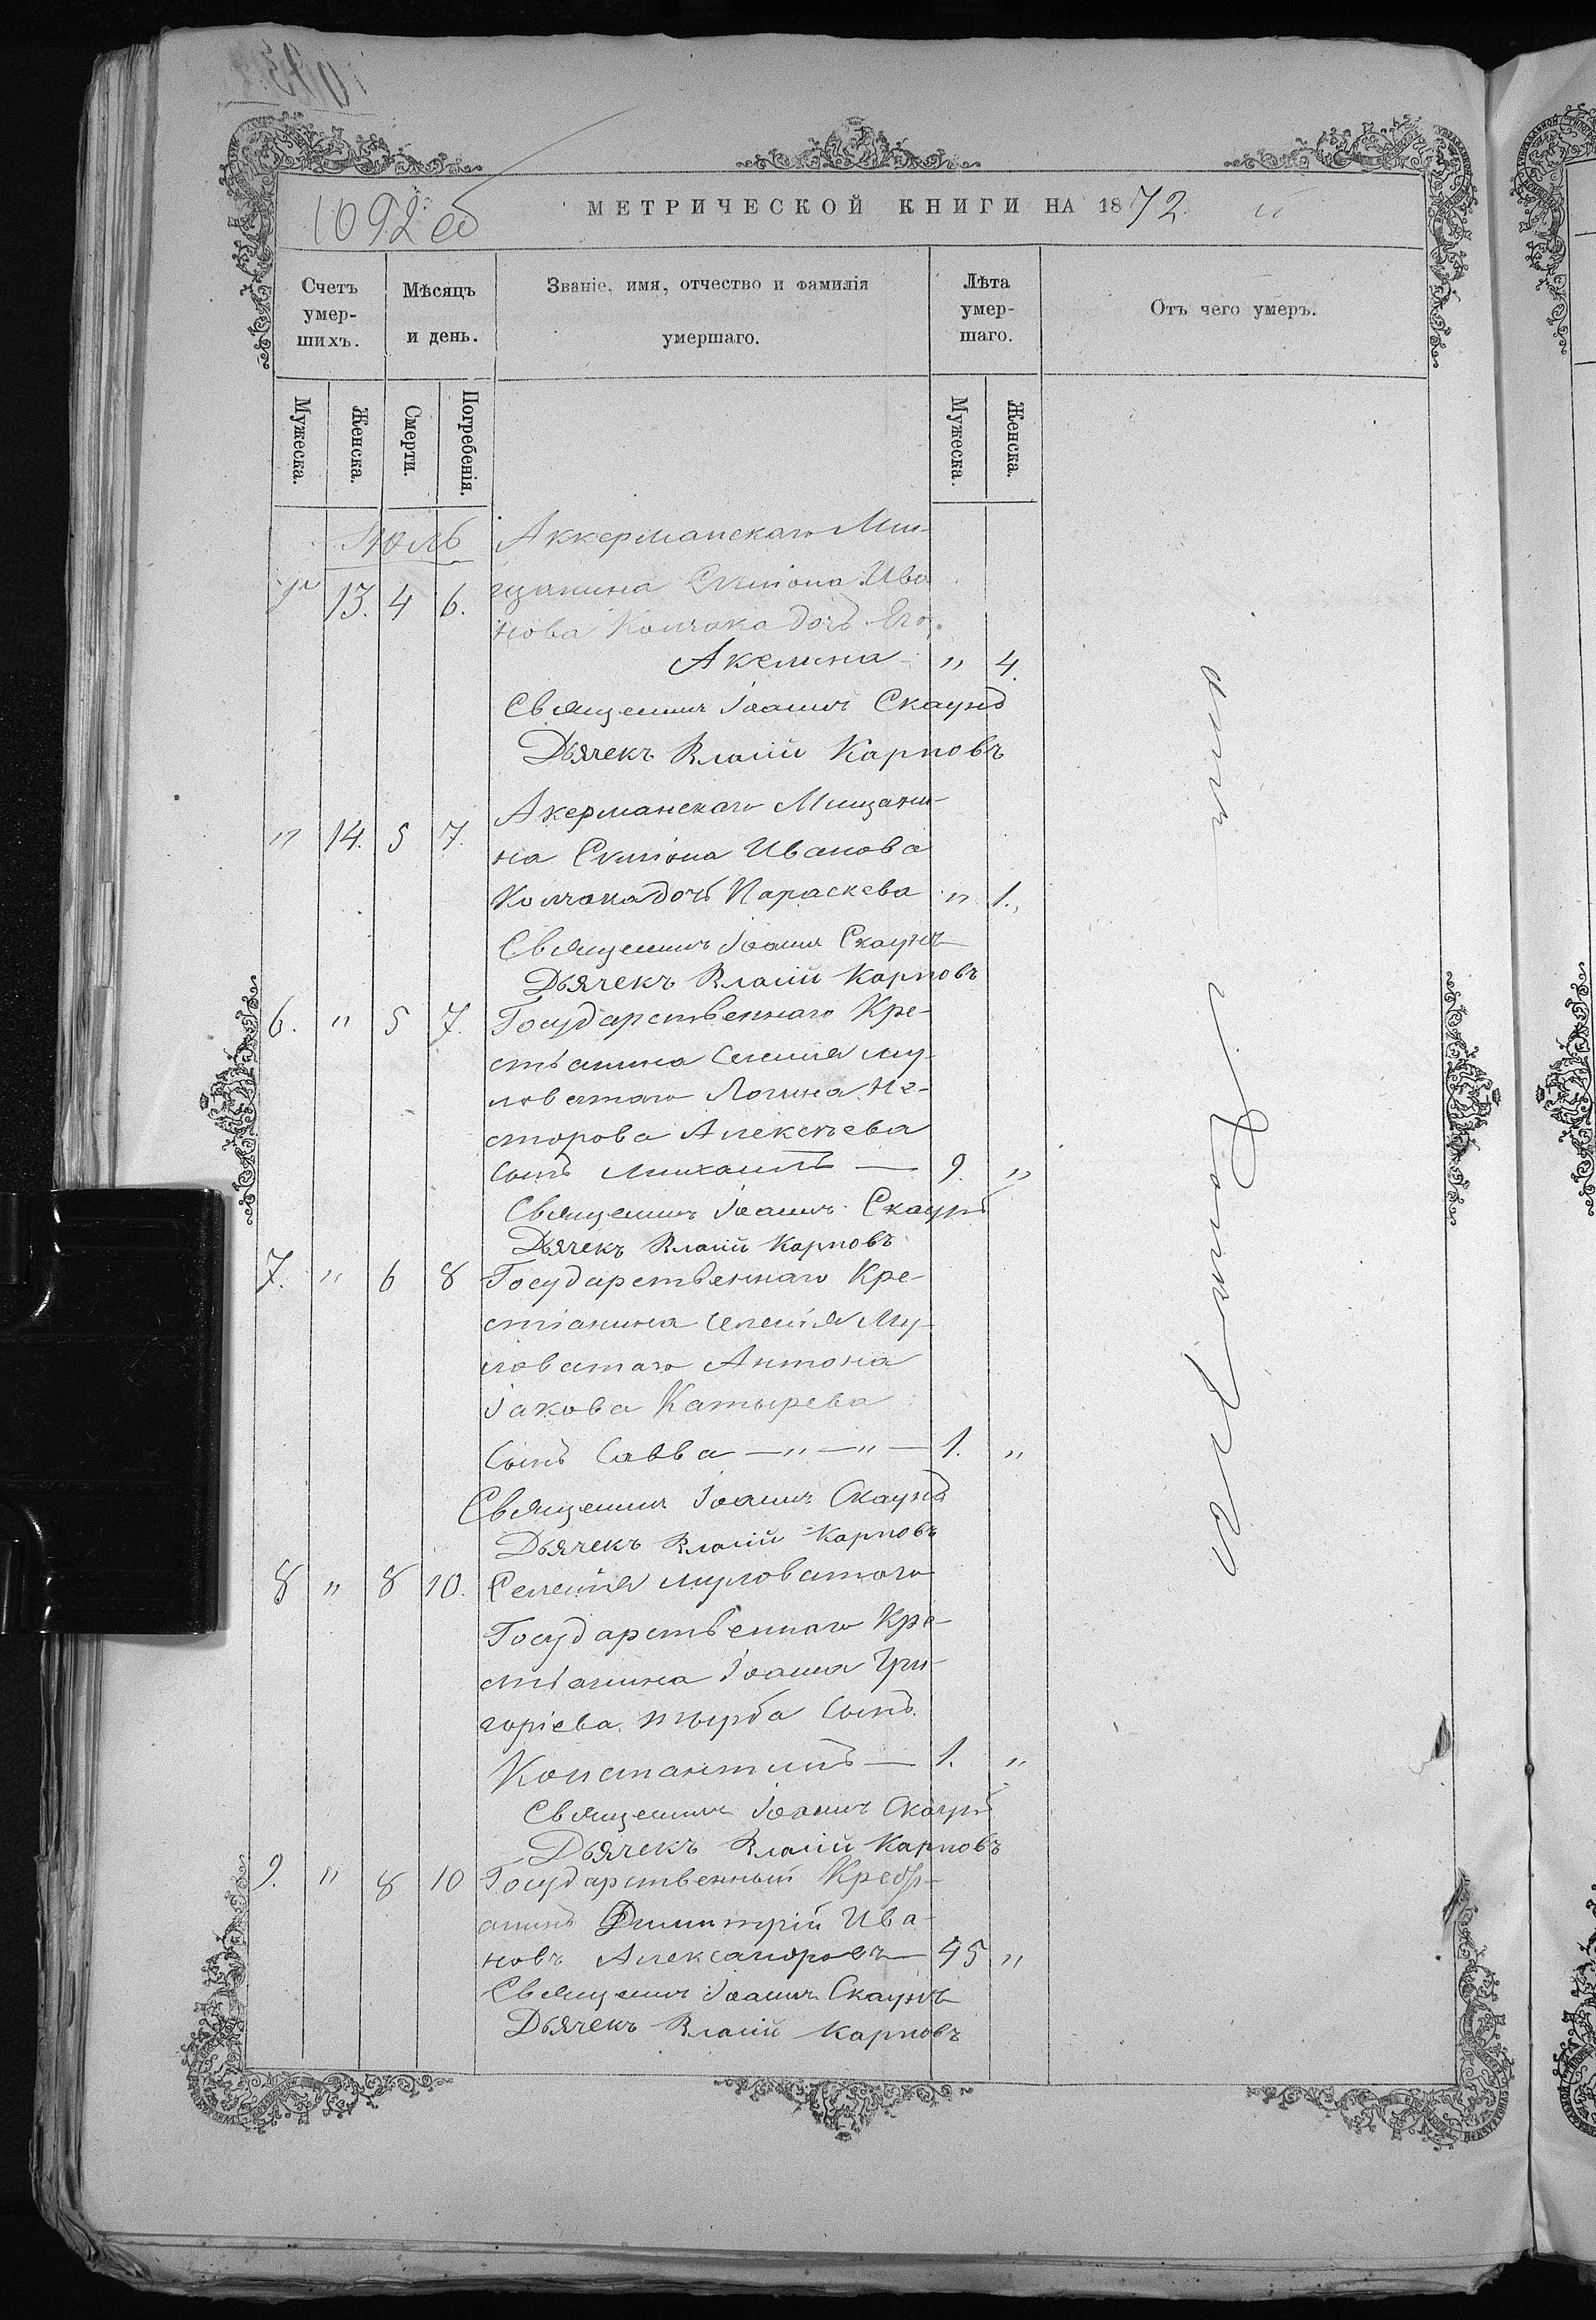 1092 об
МЕТРИЧЕСКОЙ КНИГИ НА 1872.
Счетъ умер- шихъ.
Мѣсяцъ и день.
Званіе, имя, отчество и фамилія умершаго.
Лѣта умер- шаго.
Отъ чего умеръ.
Мужеска.
Женска.
Смерти.
Погребенія.
Мужеска.
Женска.
Іюль
Аккерманскаго Мѣ-
13. 4 6. щанина Ива
нова Колчака дочь Его
Акелина " 4.
Священник Іоанн Скаунъ
Дьячекъ Власій Карповъ
Акерманскаго Мищани-
" 14. 5 7. на Иванова
Колчака дочь Параскева " 1.
Священникъ Іоанн Скаунъ
Дьячекъ Власій Карповъ
6. " 5 7. Государственнаго Кре-
стьянина Селенія Му-
ловатаго Логина Не-
сторова Алексѣева
сынъ Михаилъ — 9. "
Священникъ Іоаннъ Скаунъ
Дьячекъ Власій Карповъ
7. " 6 8 Государственнаго Кре-
стіанина Селенія Му-
ловатаго Антона
Іакова Катырева
Сынъ Савва — " — " — 1. "
Священник Іоаннъ Скаунъ
Дьячекъ Власій Карповъ
8 " 8 10. Селенія Муловатого
Государственнаго Кре-
стьянина Іоанна Гри-
горіева Тырба Сынъ
Константинъ — 1. "
Священникъ Іоаннъ Скаунъ
Дьячекъ Власій Карповъ
9. " 8 10 Государственный Кресть-
анинъ Димитрій Ива-
новъ Александровъ — 45 "
Священникъ Іоаннъ Скаунъ
Дьячекъ Власій Карповъ